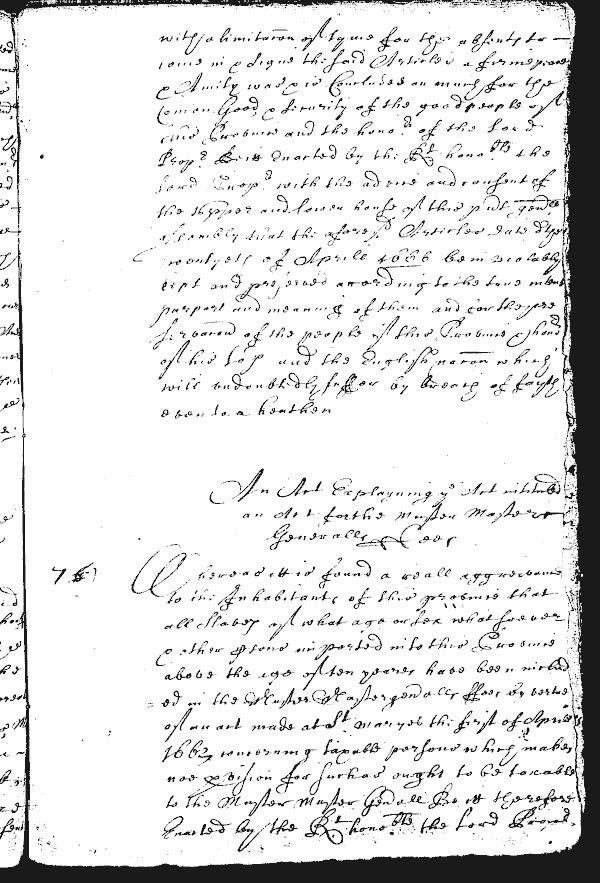 with a limitacon of tyme for the absents to
come in & signe the said Articles a firme peace
& Amity was & is Concluded on much for the
Comon Good & Security of the good people of
this Province and the hono.r of the Lord
Prop.r Be itt Enacted by the R.t hono.ble the
Lord Prop.r with the advice and consent of
the upper and lower house of this p'nt gen'll
assembly that the afores.d Articles date dyes
twentyeth of Aprill 1666 be inviolably
kept and preserved according to the true intent
purport and meaning of them and for the pre
servacon of the people of this Province & hono.r
of his Lo.p and the English nacon which
will undoubtedly suffer by breach of fayth
even to a heathen
An Act Explayning y.e Act intituled
an Act for the Muster Masters
Generalls Fees
76 Whereas itt is found a reall aggreivance
to the Inhabitants of this province that
all Slaves of what age or sex what soever
& other p'sons imported into this Province
above the age of ten yeares have been includ
=ed in the Muster Master generalls ffees by vertue
of an act made at S.t Maryes the first of Aprill
1662 concerning taxable persons which makes
noe p'vision for such as ought to be taxable
to the Muster Master Gen'all Be itt therefore
Enacted by the R.t hono.ble the Lord Propri.